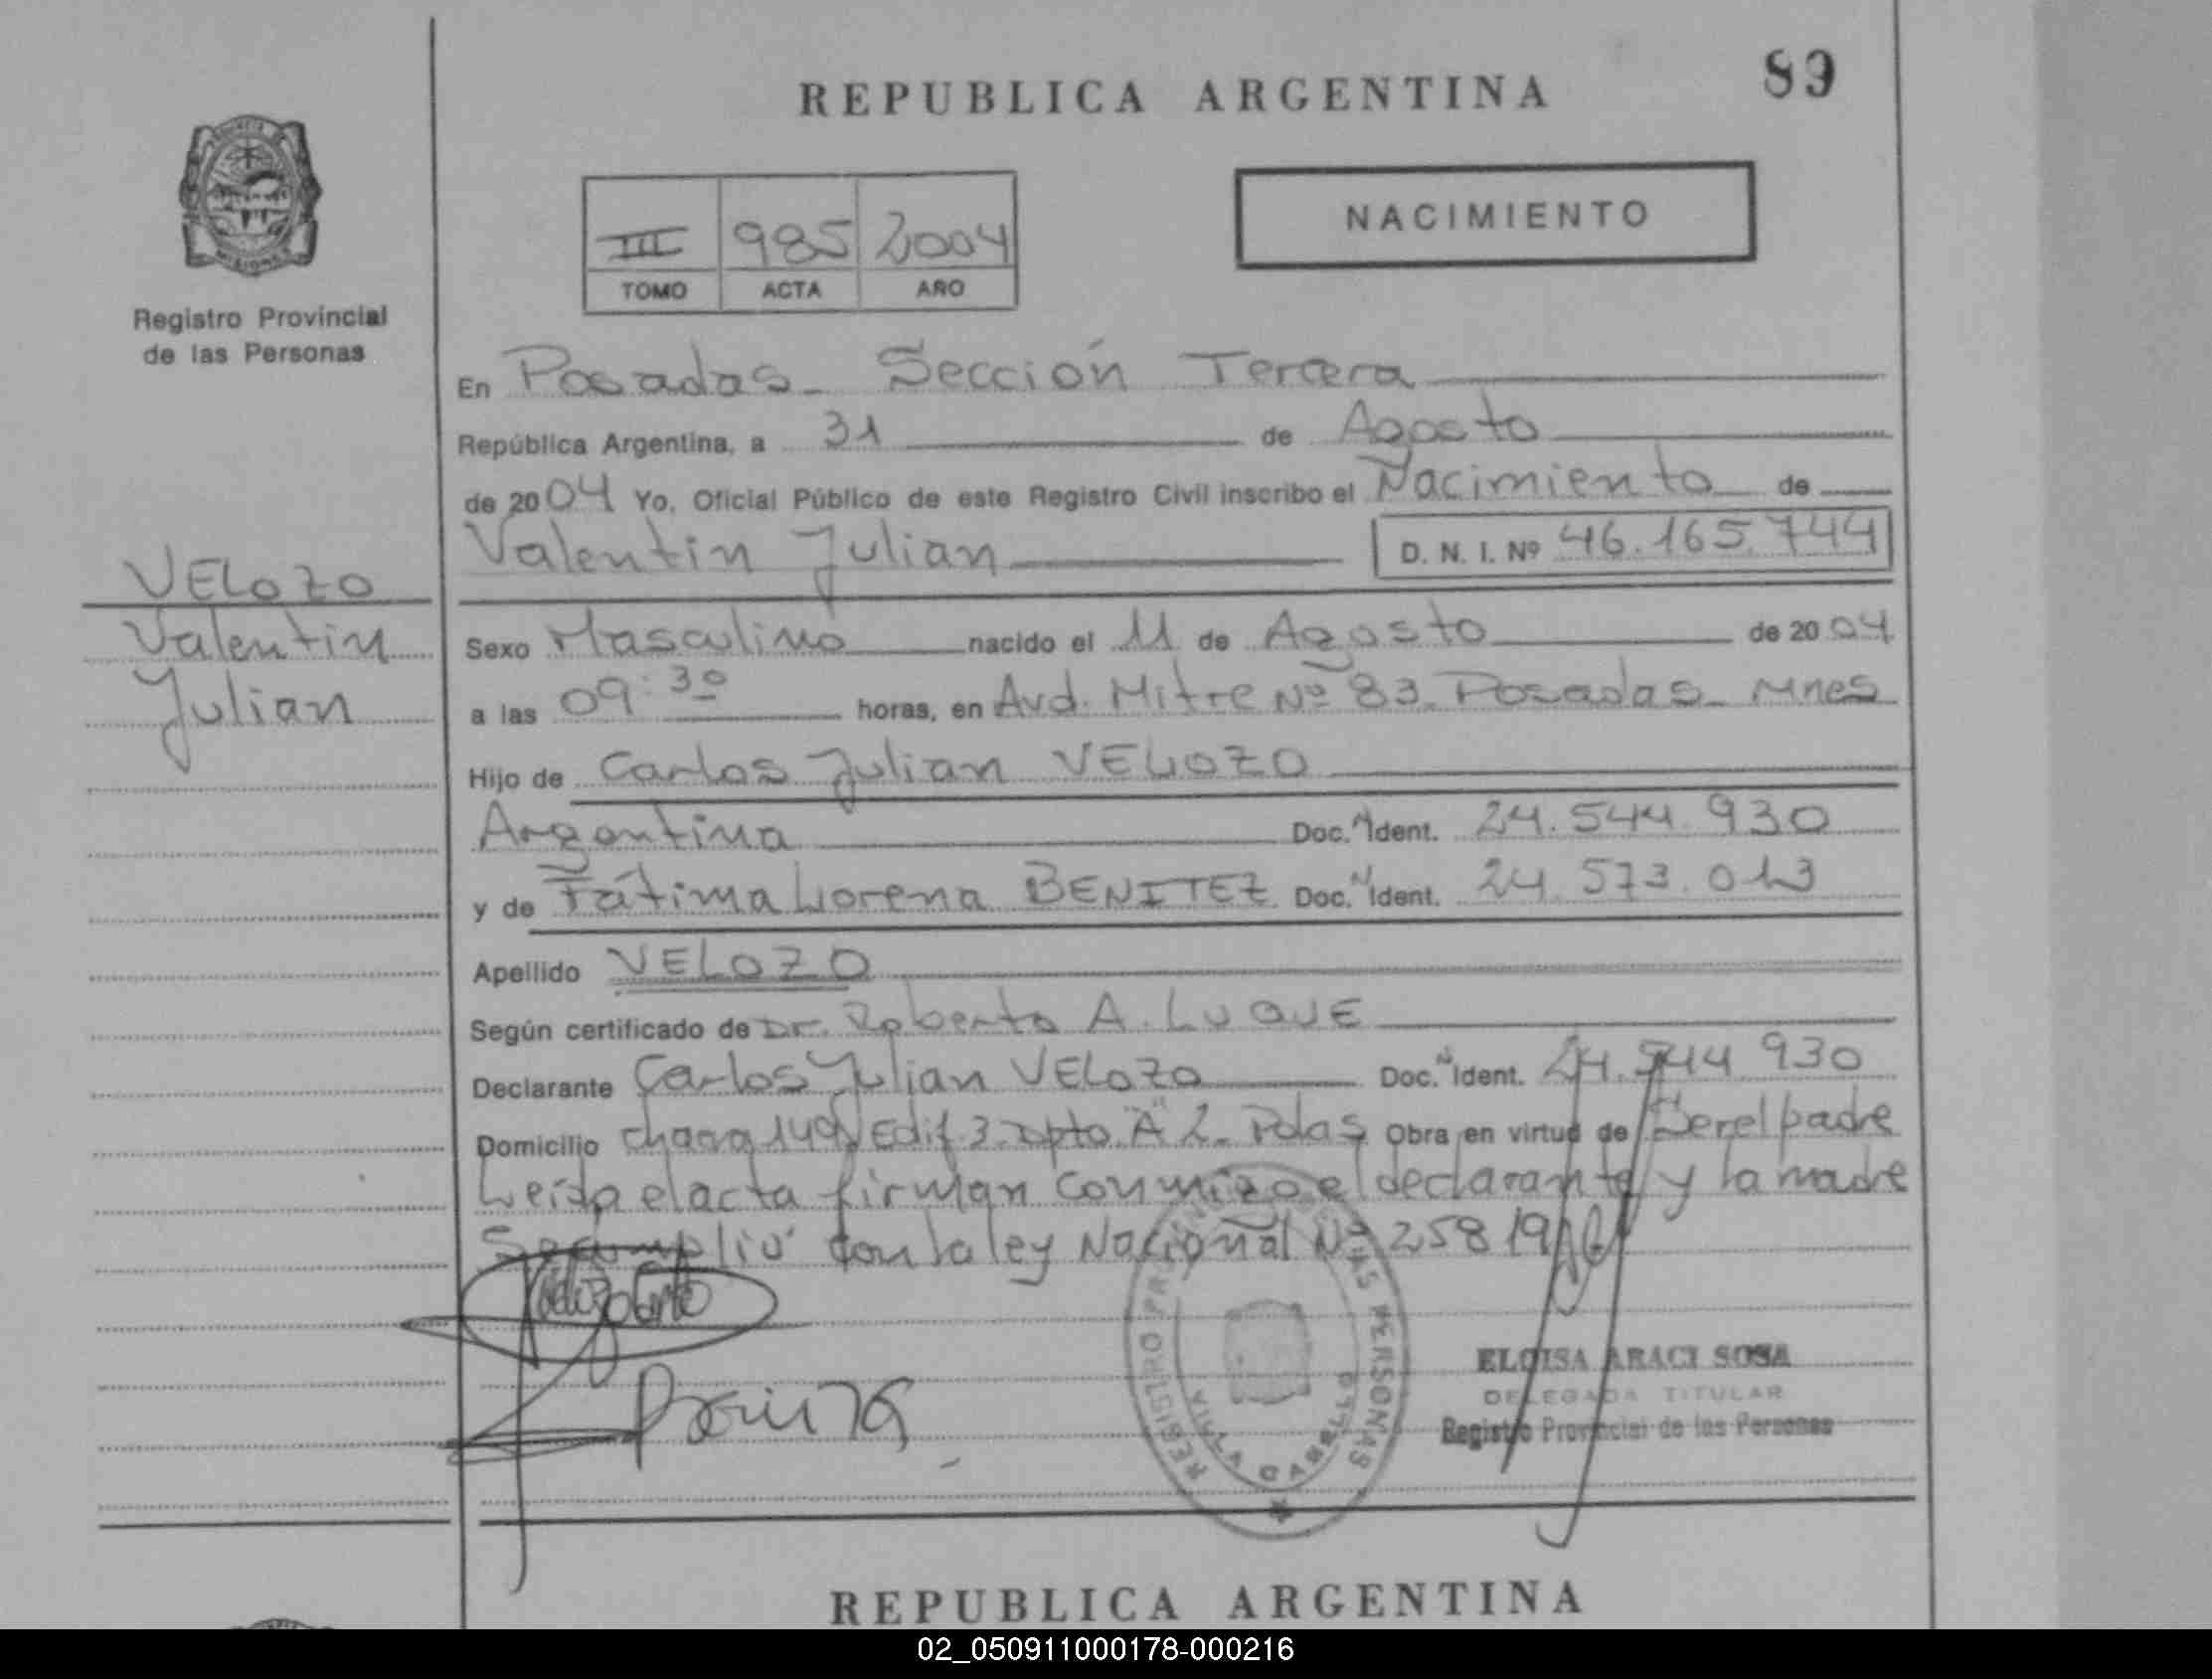 REPUBLICA ARGENTINA
89
III 985 2004
TOMO ACTA AÑO
NACIMIENTO
Registro Provincial
de las Personas
En Posadas - Sección Tercera
República Argentina, a 31 de Agosto
de 2004 Yo, Oficial Público de este Registro Civil inscribo el Nacimiento de
Valentin Julian D. N. I. Nº 46.165.744
VELOZO
Valentin
Julian
Sexo Masculino nacido el 11 de Agosto de 2004
a las 09:30 horas, en Avd. Mitre Nº 83. Posadas - Mnes
Hijo de Carlos Julian VELOZO
Argentina Doc. Ident. 24.544.930
y de Fátima Lorena BENITEZ Doc. N Ident. 24.573.013
Apellido VELOZO
Según certificado de Dr. Roberto A. LUQUE
Declarante Carlos Julian VELOZO Doc. N Ident. 24.544 930
Domicilio chacra 149 Edif. 3 Dpto "A" 2 - Pdas Obra en virtud de Ser el padre
Leída el acta firman conmigo el declarante y la madre
Se cumplió con la ley Nacional Nº 25819
REGISTRO PROVINCIAL DE LAS PERSONAS
VILLA CABELLO
ELOISA ARACI SOSA
DELEGADA TITULAR
Registro Provincial de las Personas
REPUBLICA ARGENTINA
02_050911000178-000216